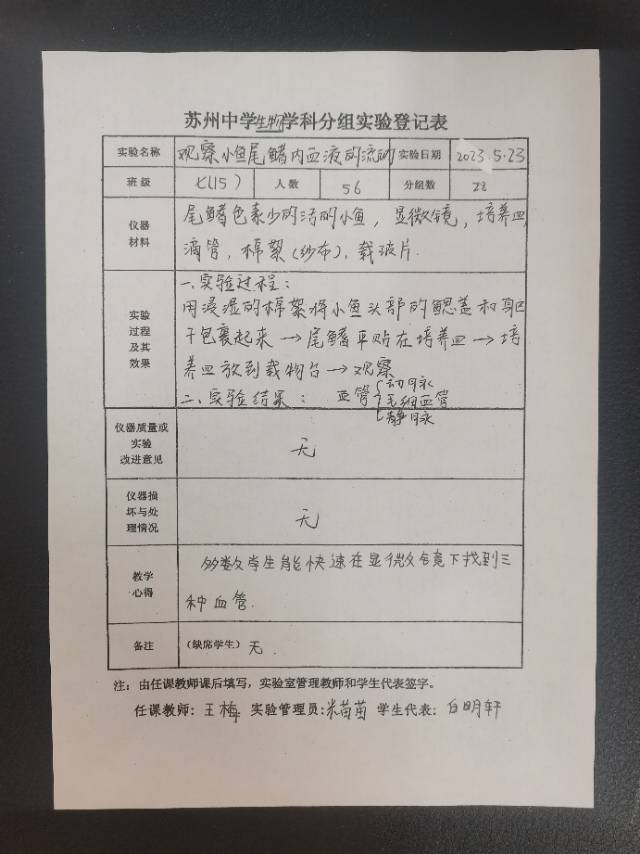 苏州中学生物学科分组实验登记表
实验名称 观察小鱼尾鳍内血液的流动 实验日期 2023.5.23
班级 七(15) 人数 56 分组数 28
仪器材料 尾鳍色素少的活的小鱼，显微镜，培养皿，
滴管，棉絮(纱布)，载玻片.
实验过程及其效果
一、实验过程：
用浸湿的棉絮将小鱼头部的鳃盖和躯
干包裹起来→尾鳍平贴在培养皿→培
养皿放到载物台→观察
二、实验结果： 血管{动脉
毛细血管
静脉
仪器质量或实验改进意见 无
仪器损坏与处理情况 无
教学心得 多数学生能快速在显微镜下找到三
种血管.
备注 (缺席学生) 无.
注：由任课教师课后填写，实验室管理教师和学生代表签字。
任课教师：王梅 实验管理员：米苗苗 学生代表：白明轩